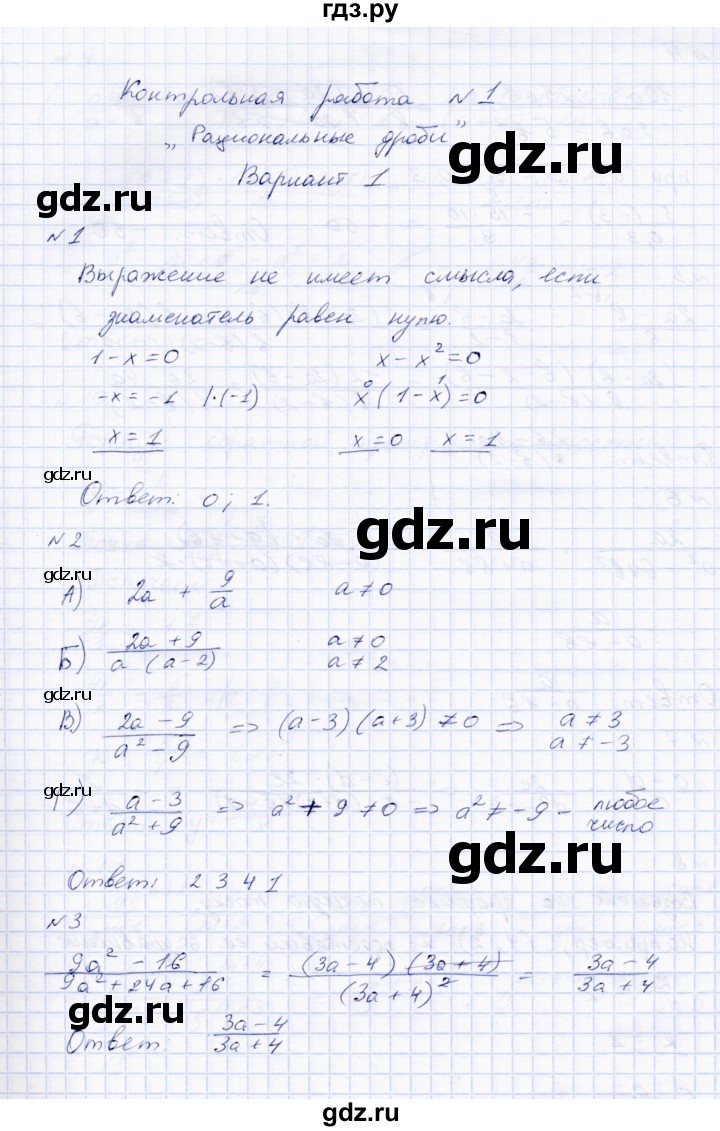 гдз.ру
Контрольная работа №1
„Рациональные дроби"
gdz.ru
Вариант 1
gdz.ru
№1
Выражение не имеет смысла, если
знаменатель равен нулю.
1-x=0    x-x²=0
-x=-1 |·(-1)    x⁰(1-x¹)=0
x=1    x=0  x=1
gdz.ru
Ответ: 0; 1.
gdz.ru
№2
gdz.ru
А) 2a + 9/a    a≠0
Б) (2a+9)/(a(a-2))    a≠0 a≠2
gdz.ru
В) (2a-9)/(a²-9) => (a-3)(a+3)≠0 => a≠3 a≠-3
gdz.ru
Г) (a-3)/(a²+9) => a²+9≠0 => a²≠-9 - любое число
gdz.ru
Ответ: 2 3 4 1
№3
(9a²-16)/(9a²+24a+16) = ((3a-4)(3a+4))/(3a+4)² = (3a-4)/(3a+4)
gdz.ru
Ответ: (3a-4)/(3a+4)
gdz.ru
gdz.ru